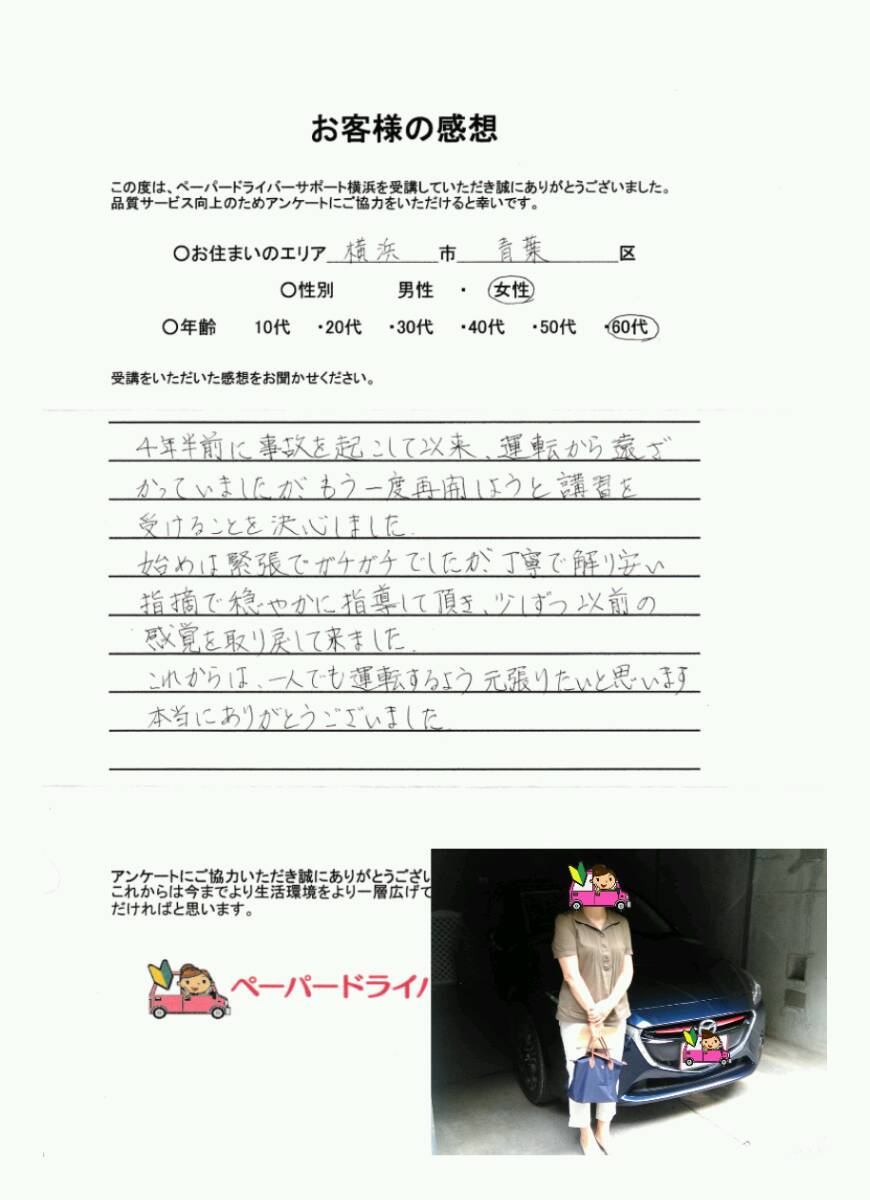 お客様の感想
この度は、ペーパードライバーサポート横浜を受講していただき誠にありがとうございました。
品質サービス向上のためアンケートにご協力をいただけると幸いです。
〇お住まいのエリア 横浜 市 青葉 区
〇性別 男性 ・ 女性
〇年齢 10代 ・20代 ・30代 ・40代 ・50代 ・60代
受講をいただいた感想をお聞かせください。
4年半前に事故を起こして以来、運転から遠ざ
かっていましたが、もう一度再開しようと講習を
受けることを決心しました。
始めは緊張でガチガチでしたが、丁寧で解り安い
指摘で穏やかに指導して頂き、少しずつ以前の
感覚を取り戻して来ました。
これからは、一人でも運転するよう元張りたいと思います
本当にありがとうございました。
アンケートにご協力いただき誠にありがとうござい
これからは今までより生活環境をより一層広げて
だければと思います。
ペーパードライバ